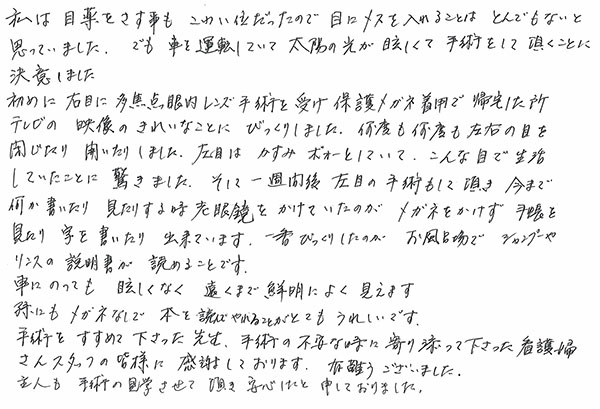 私は目薬をさす事も こわい位だったので 目にメスを入れることは とんでもないと
思っていました。でも 車を運転していて 太陽の光が 眩しくて 手術をして 頂くことに
決意しました
初めに 右目に 多焦点眼内レンズ手術を受け 保護メガネ着用で 帰宅した所
テレビの 映像の きれいなことに びっくりしました。何度も何度も左右の目を
閉じたり 開いたりしました。左目は かすみ ボォーとしていて、こんな目で生活
していたことに 驚きました。そして 一週間後 左目の手術もして頂き 今まで
何か書いたり 見たりする時 老眼鏡を かけていたのが メガネをかけず 手帳を
見たり 字を書いたり 出来ています。一番びっくりしたのが お風呂場で シャンプーや
リンスの 説明書が 読めることです。
車にのっても 眩しくなく 遠くまで 鮮明によく見えます
孫にもメガネなしで 本を読んでやれることがとても うれしいです。
手術を すすめて 下さった先生、手術の不安な時に 寄り添って下さった看護婦
さんスタッフの皆様に 感謝しております。有難う ございました。
主人も 手術の見学させて 頂き 安心したと 申しておりました。